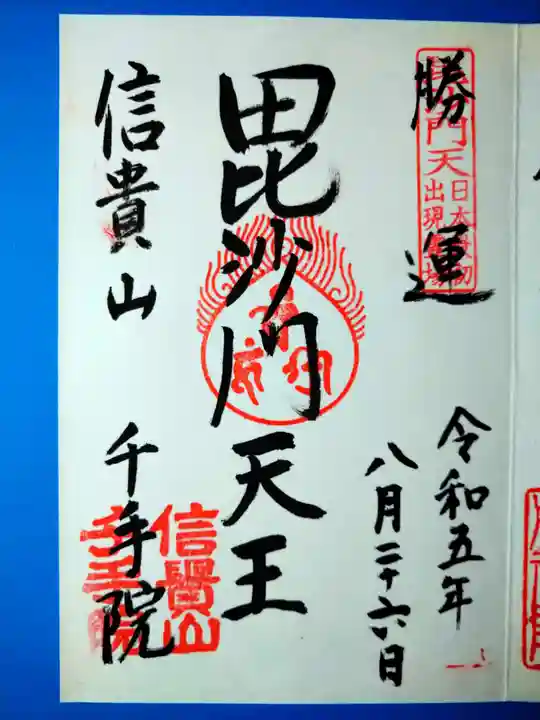 勝運
門天
日本最初
出現霊場
令和五年
八月二十六日
毘沙門天王
信貴山
千手院
信貴山